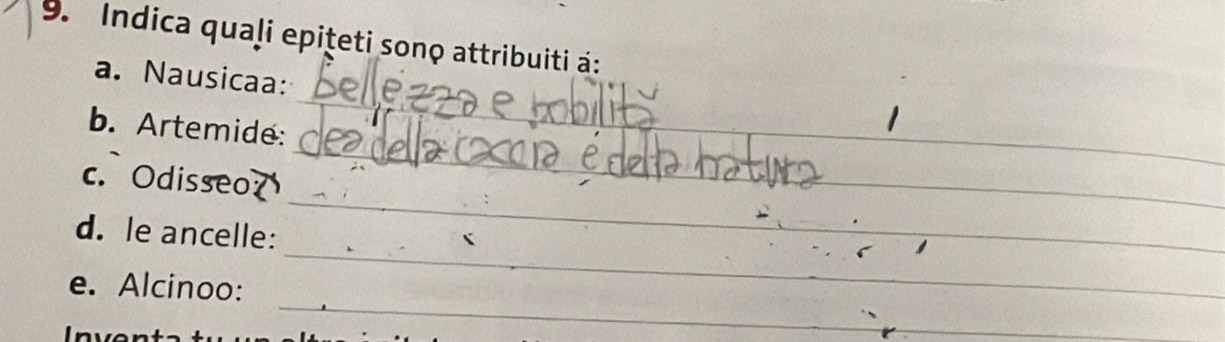 9. Indica quali epiteti sono attribuiti a:
a. Nausicaa: bellezza e nobilità
b. Artemide: dea della caccia e della natura
c. Odisseo:
d. le ancelle:
e. Alcinoo:
Inventa tu un